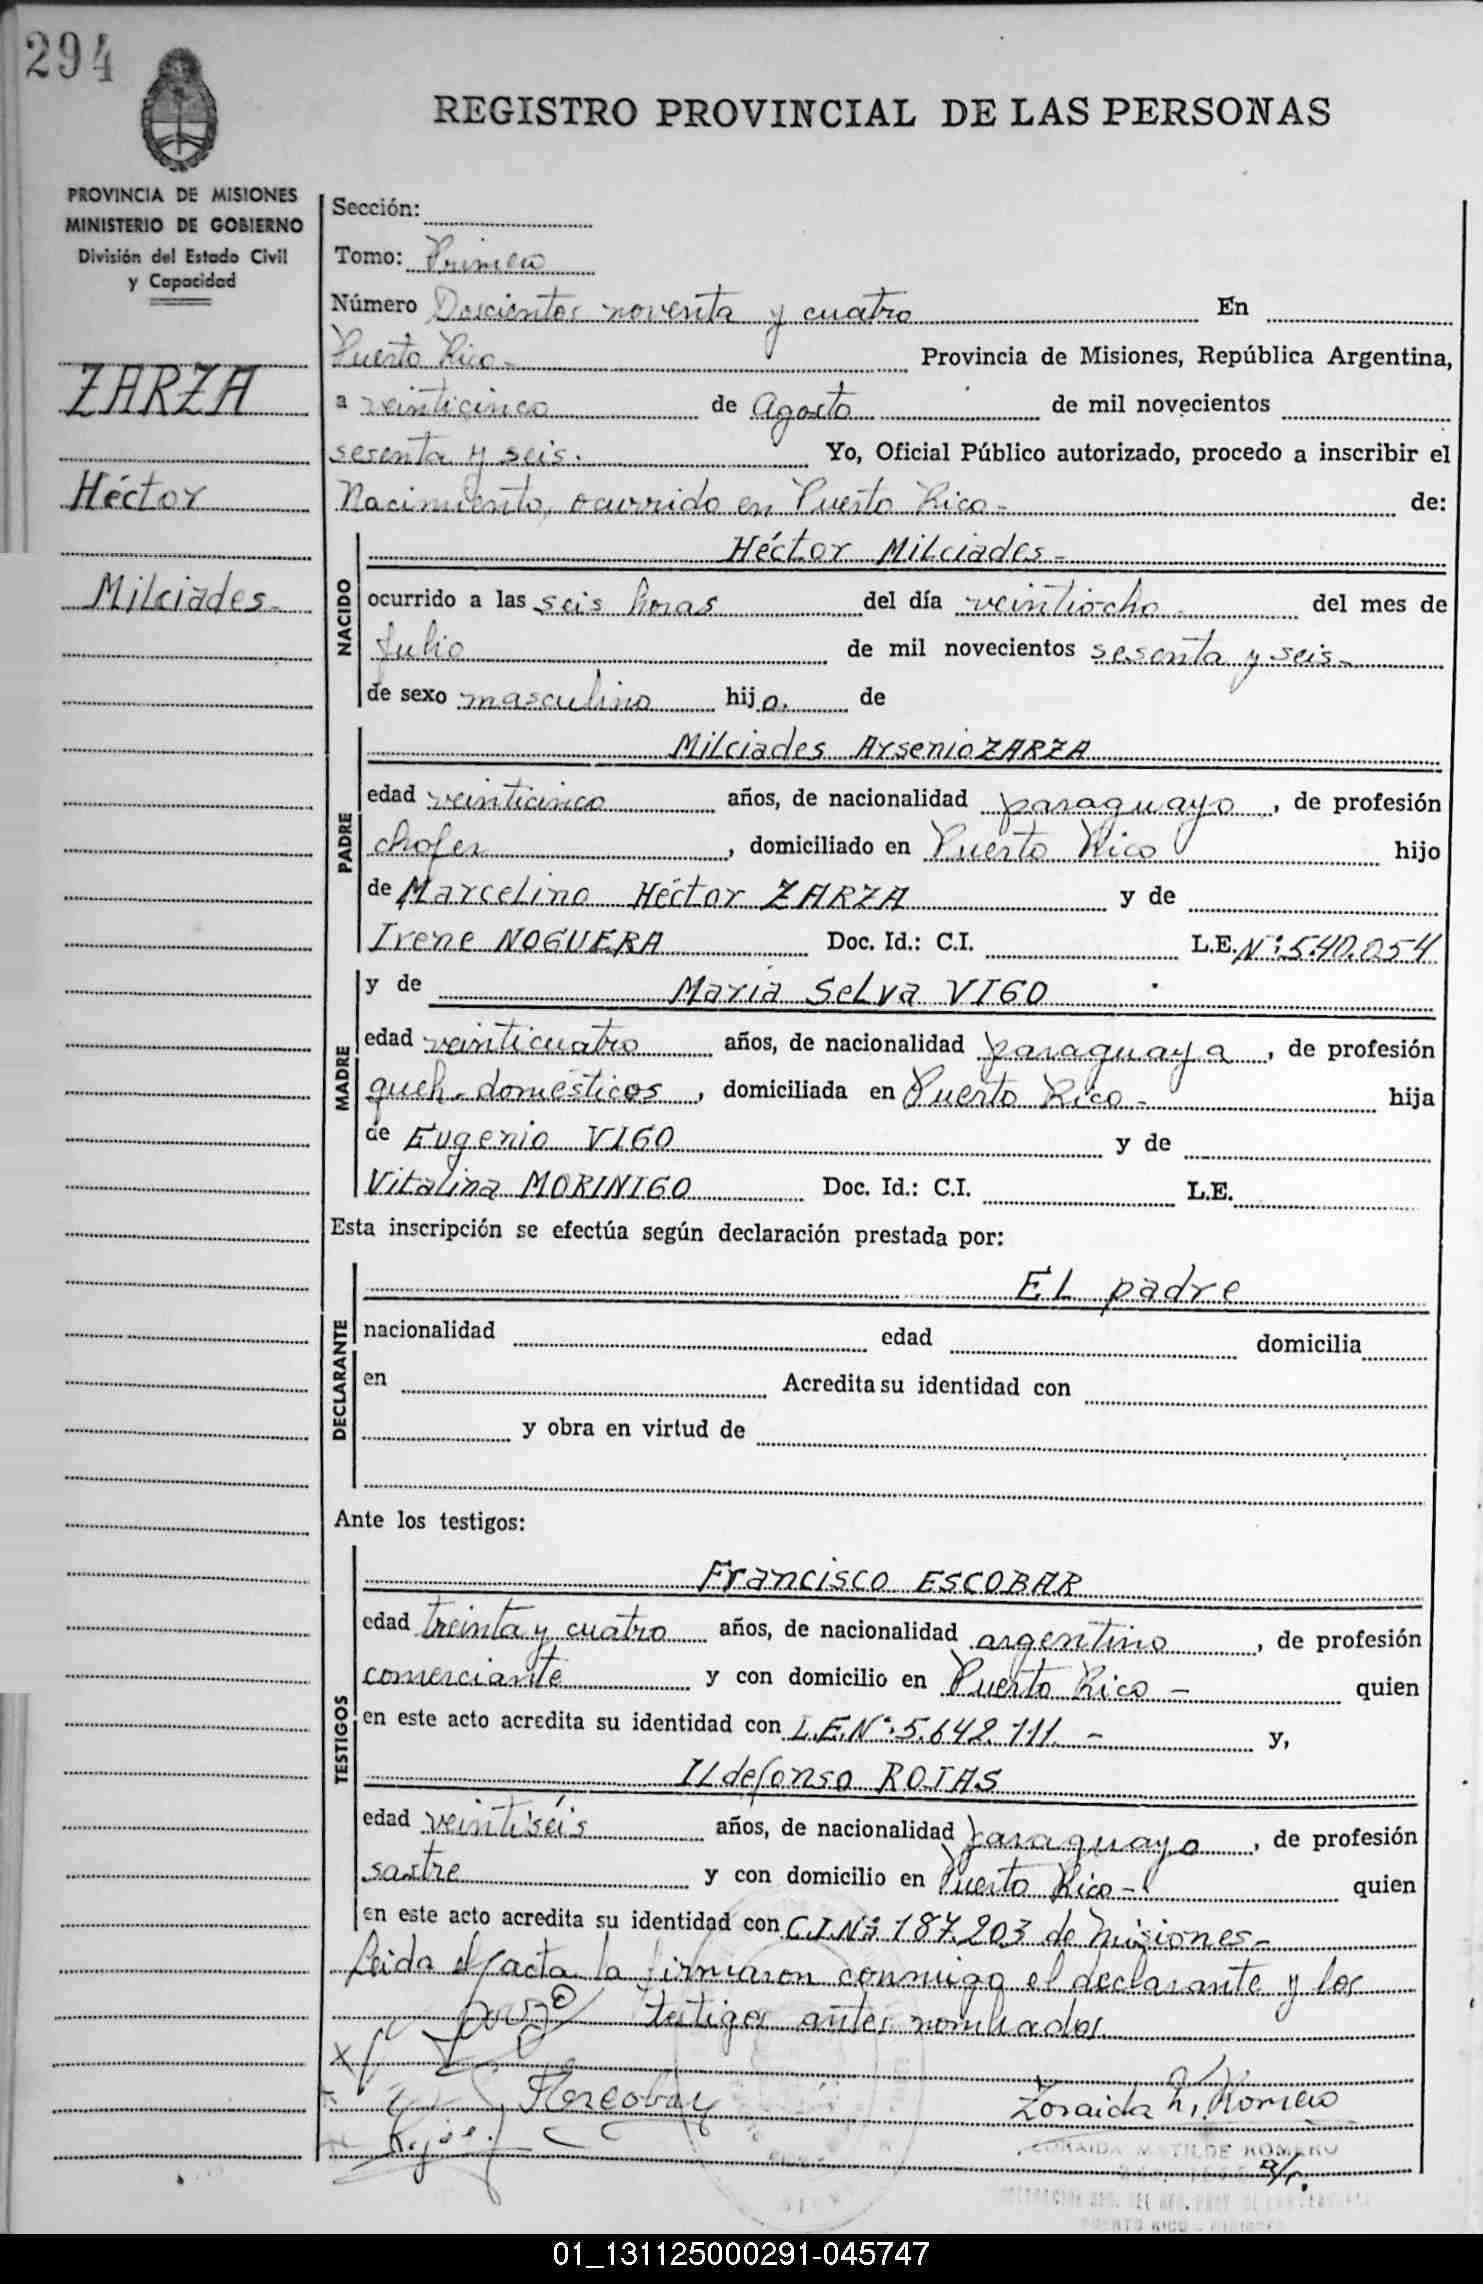 294
REGISTRO PROVINCIAL DE LAS PERSONAS
PROVINCIA DE MISIONES
MINISTERIO DE GOBIERNO
División del Estado Civil
y Capacidad
ZARZA
Héctor
Milciades
Sección:
Tomo: Primero
Número Doscientos noventa y cuatro En
Puerto Rico- Provincia de Misiones, República Argentina,
a veinticinco de Agosto de mil novecientos
sesenta y seis. Yo, Oficial Público autorizado, procedo a inscribir el
Nacimiento, ocurrido en Puerto Rico- de:
NACIDO
Héctor Milciades-
ocurrido a las seis horas del día veintiocho- del mes de
Julio de mil novecientos sesenta y seis-
de sexo masculino hijo. de
PADRE
Milciades Arsenio ZARZA
edad veinticinco años, de nacionalidad paraguayo, de profesión
chofer, domiciliado en Puerto Rico hijo
de Marcelino Héctor ZARZA y de
Irene NOGUERA Doc. Id.: C.I. L.E. Nº:5.40.054
MADRE
y de María Selva VIGO
edad veinticuatro años, de nacionalidad paraguaya, de profesión
queh. domésticos, domiciliada en Puerto Rico- hija
de Eugenio VIGO y de
Vitalina MORINIGO Doc. Id.: C.I. L.E.
Esta inscripción se efectúa según declaración prestada por:
DECLARANTE
El padre
nacionalidad edad domicilia
en Acredita su identidad con
y obra en virtud de
Ante los testigos:
TESTIGOS
Francisco ESCOBAR
edad treinta y cuatro años, de nacionalidad argentino, de profesión
comerciante y con domicilio en Puerto Rico - quien
en este acto acredita su identidad con L.E.Nº:5.642.111.- y,
Ildefonso ROJAS
edad veintiséis años, de nacionalidad paraguayo, de profesión
sastre y con domicilio en Puerto Rico- quien
en este acto acredita su identidad con C.I.Nº:187.203 de Misiones-
Leida el acta la firmaron conmigo el declarante y los
testigos antes nombrados
Zoraida M. Romero
ZORAIDA MATILDE ROMERO
PUERTO RICO - MISIONES
01_131125000291-045747